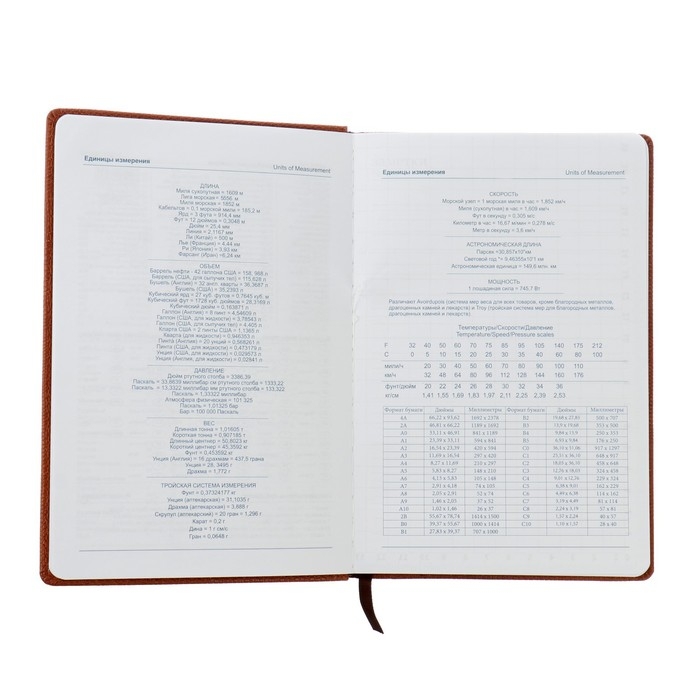 Единицы измерения
Units of Measurement
ДЛИНА
Миля сухопутная = 1609 м
Лига морская = 5556 м
Миля морская = 1852 м
Кабельтов = 0,1 морской мили = 185,2 м
Ярд = 3 фута = 914,4 мм
Фут = 12 дюймов = 0,3048 м
Дюйм = 25,4 мм
Линия = 2,1167 мм
Ли (Китай) = 500 м
Лье (Франция) = 4,44 км
Ри (Япония) = 3,93 км
Фарсанг (Иран) =6,24 км
ОБЪЕМ
Баррель нефти - 42 галлона США = 158, 988 л
Баррель (США, для сыпучих тел) = 115,628 л
Бушель (Англия) = 32 англ. кварты = 36,3687 л
Бушель (США) = 35,2393 л
Кубический ярд = 27 куб. футов = 0,7645 куб. м
Кубический фут = 1728 куб. дюймов = 28,3169 л
Кубический дюйм = 0,163871 л
Галлон (Англия) = 8 пинт = 4,54609 л
Галлон (США, для жидкости) = 3,78543 л
Галлон (США, для сыпучих тел) = 4,405 л
Кварта США = 2 пинты США = 1,1365 л
Кварта (для жидкости) = 0,946353 л
Пинта (Англия) = 20 унций = 0,568261 л
Пинта (США, для жидкости) = 0,473179 л
Унция (США, для жидкости) = 0,029573 л
Унция (Англия, для жидкости) = 0,02841 л
ДАВЛЕНИЕ
Дюйм ртутного столба = 3386,39
Паскаль = 33,8639 миллибар см ртутного столба = 1333,22
Паскаль = 13,3322 миллибар мм ртутного столба = 133,322
Паскаль = 1,33322 миллибар
Атмосфера физическая = 101,325
Паскаль = 1,01325 бар
Бар = 100 000 Паскаль
ВЕС
Длинная тонна = 1,01605 т
Короткая тонна = 0,907185 т
Длинный центнер = 50,8023 кг
Короткий центнер = 45,3592 кг
Фунт = 0,453592 кг
Унция (Англия) = 16 драхмам = 437,5 грана
Унция = 28, 3495 г
Драхма = 1,772 г
ТРОЙСКАЯ СИСТЕМА ИЗМЕРЕНИЯ
Фунт = 0,37324177 кг
Унция (аптекарский) = 31,1035 г
Драхма (аптекарский) = 3,888 г
Скрупул (аптекарский) = 20 гран = 1,296 г
Карат = 0,2 г
Дина = 1 г см/с
Гран = 0,0648 г
Единицы измерения
Units of Measurement
СКОРОСТЬ
Морской узел = 1 морская миля в час = 1,852 км/ч
Миля (сухопутная) в час = 1,609 км/ч
Фут в секунду = 0,305 м/с
Километр в час = 16,67 м/мин = 0,278 м/с
Метр в секунду = 3,6 км/ч
АСТРОНОМИЧЕСКАЯ ДЛИНА
Световой год
Астрономическая единица = 149,6 млн. км
МОЩНОСТЬ
1 лошадиная сила = 745,7 Вт
Различают Avoirdupois (система мер веса для всех товаров, кроме благородных металлов,
драгоценных камней и лекарств) и Troy (тройская система для благородных металлов,
драгоценных камней и лекарств).
Температуры/Скорости/Давление
Temperature/Speed/Pressure scales
F 32 40 50 60 70 75 85 95 105 140 175 212
C 0 5 10 15 20 25 30 35 40 60 80 100
мили/ч 20 30 40 50 60 70 80 90 100 110
км/ч 32 48 64 80 96 112 128 144 160 176
фунт/дюйм 20 22 24 26 28 30 32 34 36
кг/см 1,41 1,55 1,69 1,83 1,97 2,11 2,25 2,39 2,53
Формат бумаги Дюймы Миллиметры Формат бумаги Дюймы Миллиметры
4A 66,22 x 93,62 1682 x 2378 B2 19,68 x 27,83 500 x 707
2A 46,81 x 66,22 1189 x 1682 B3 13,9 x 19,68 353 x 500
A0 33,11 x 46,81 841 x 1189 B4 9,84 x 13,9 250 x 353
A1 23,39 x 33,11 594 x 841 B5 6,93 x 9,84 176 x 250
A2 16,54 x 23,39 420 x 594 C0 36,10 x 51,06 917 x 1297
A3 11,69 x 16,54 297 x 420 C1 25,51 x 36,10 648 x 917
A4 8,27 x 11,69 210 x 297 C2 18,03 x 36,10 458 x 648
A5 5,83 x 8,27 148 x 210 C3 12,76 x 18,03 324 x 458
A6 4,13 x 5,83 105 x 148 C4 9,01 x 12,76 229 x 324
A7 2,91 x 4,13 74 x 105 C5 6,38 x 9,01 162 x 229
A8 2,05 x 2,91 52 x 74 C6 4,49 x 6,38 114 x 162
A9 1,46 x 2,05 37 x 52 C7 3,19 x 4,49 81 x 114
A10 1,02 x 1,46 26 x 37 C8 2,24 x 3,19 57 x 81
2B 55,67 x 78,74 1414 x 1500 C9 1,57 x 2,24 40 x 57
B0 39,37 x 55,67 1000 x 1414 C10 1,10 x 1,57 28 x 40
B1 27,83 x 39,37 707 x 1000